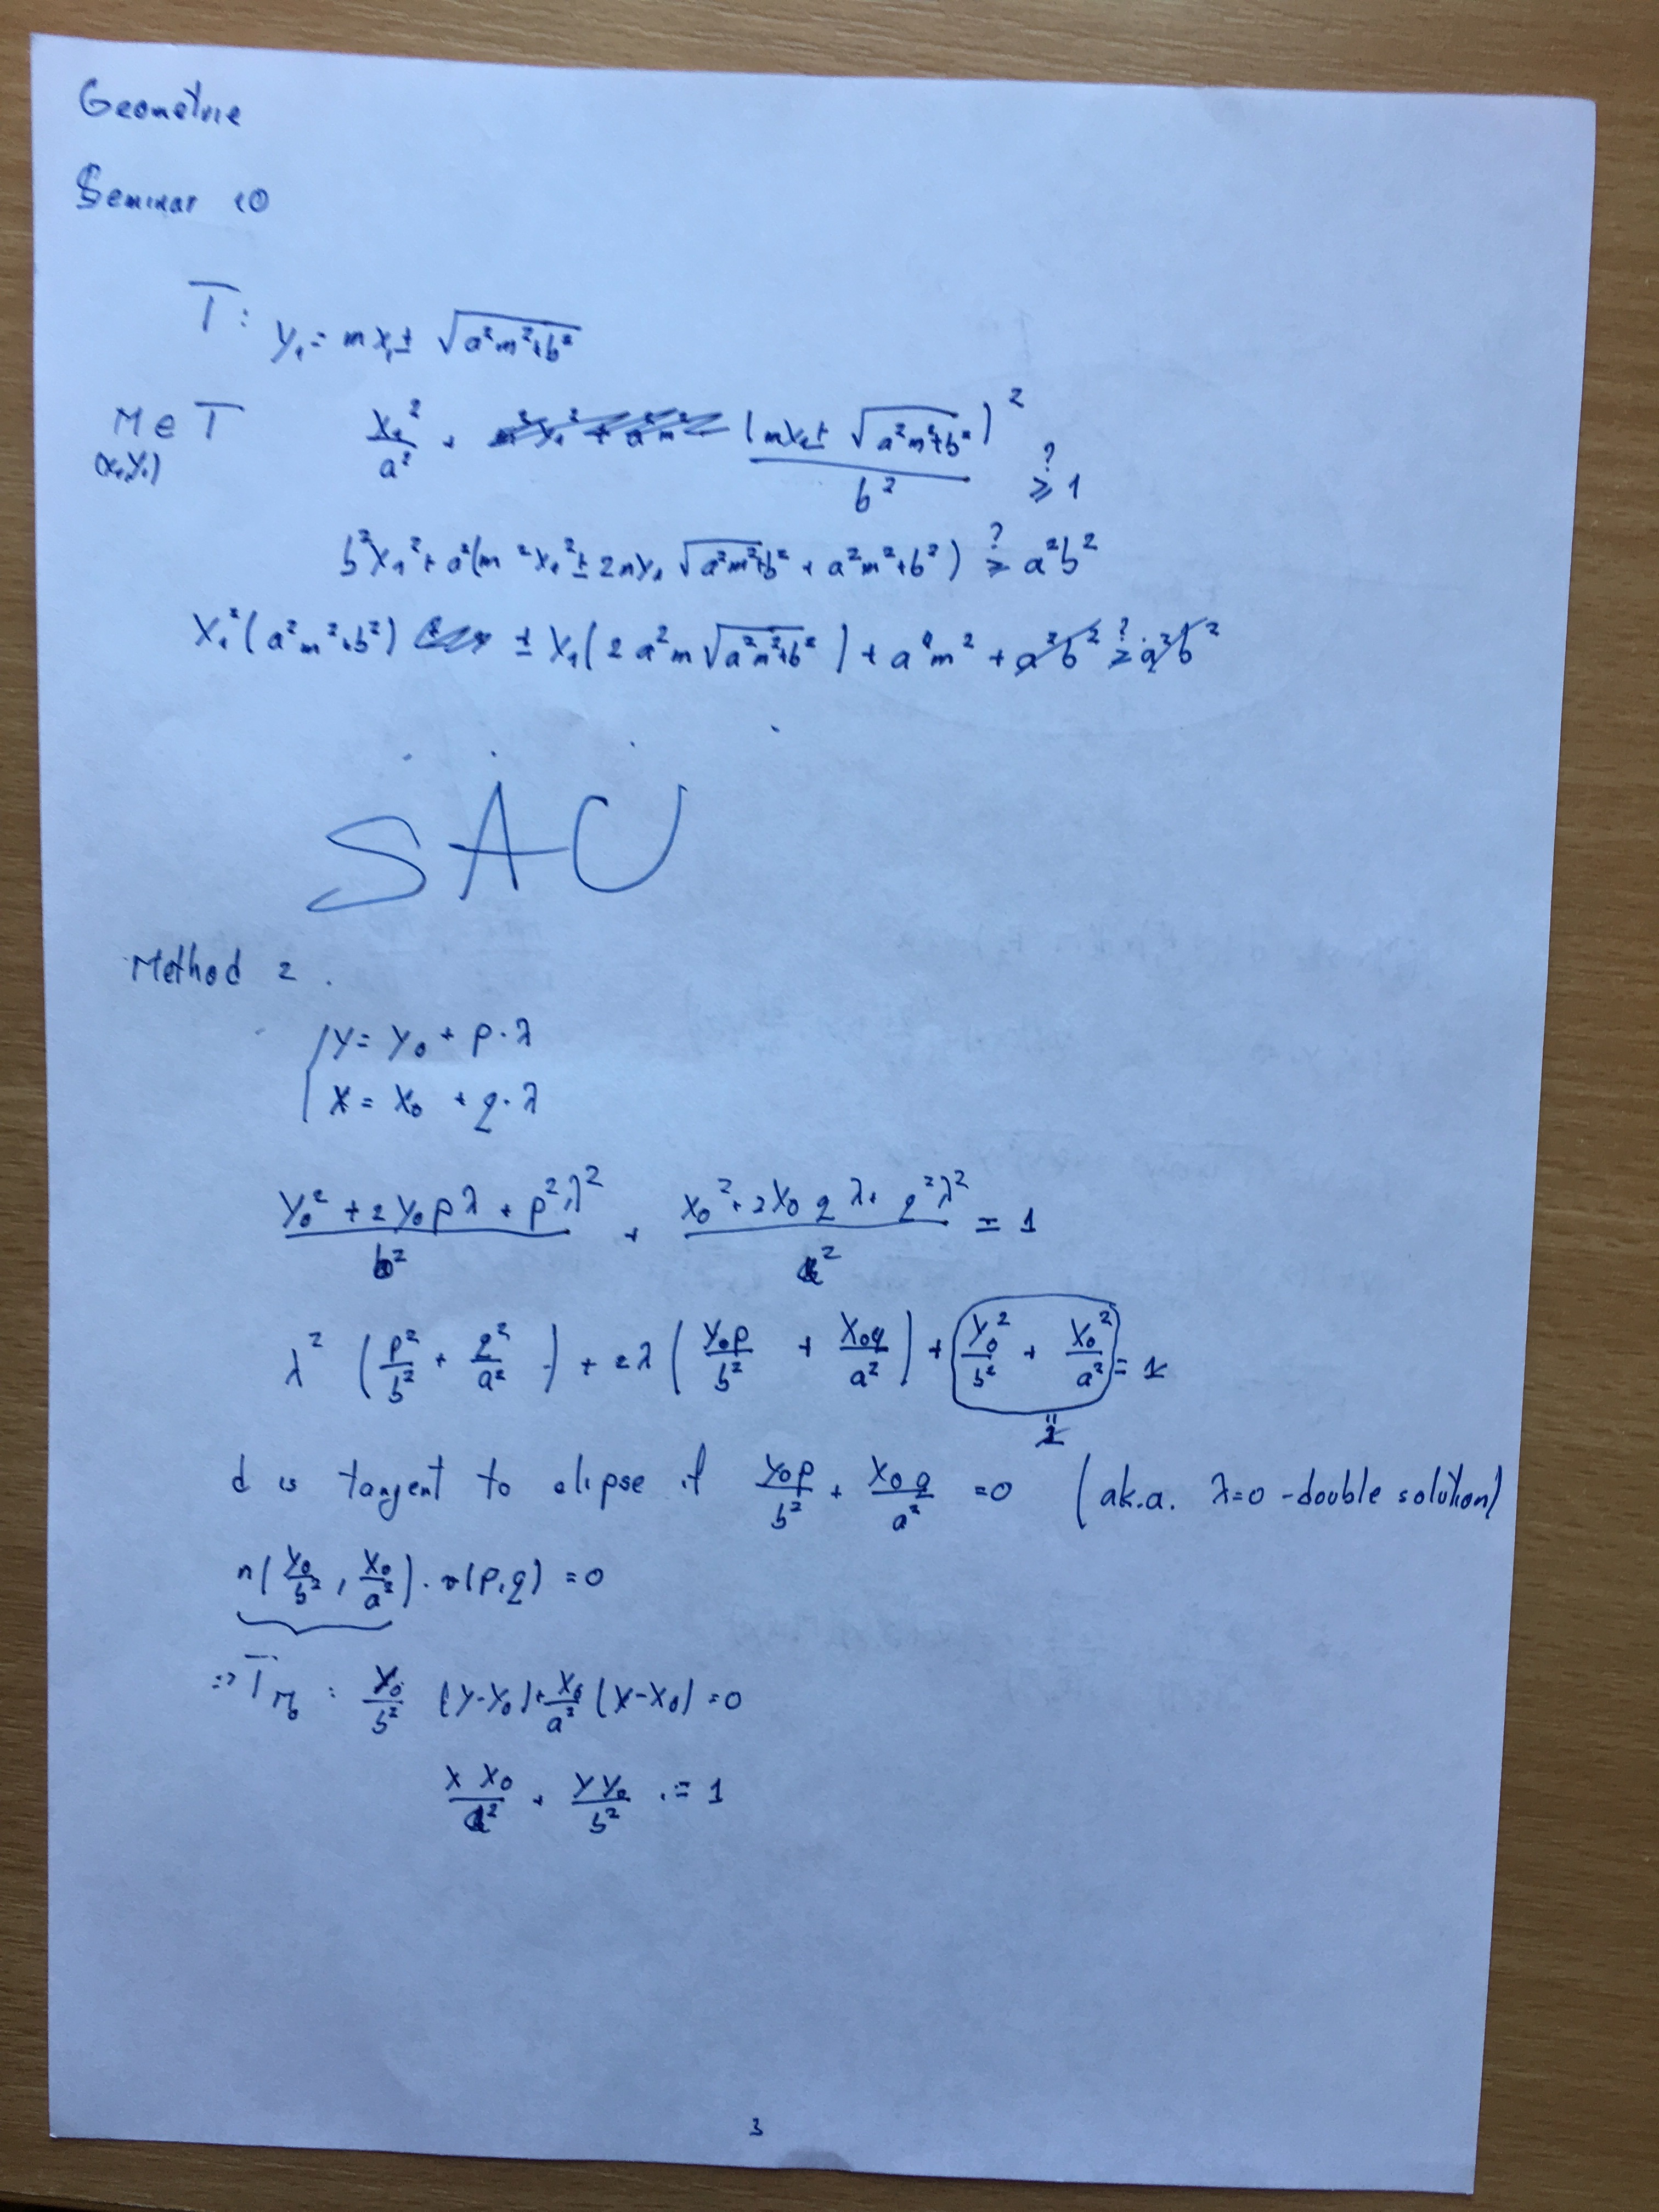 Geometrie
Seminar 10
T: y₁ = mx₁ ± √(a²m²+b²)
M ∈ T x₁²/a² + (mx₁ ± √(a²m²+b²))²/b² ≥? 1
(x₁,y₁)
b²x₁² + a²(m²x₁² ± 2mx₁ √(a²m²+b²) + a²m²+b²) ≥? a²b²
x₁²(a²m²+b²) ± x₁(2a²m√(a²m²+b²)) + a⁴m² + a²b² ≥? a²b²
SAU
Method 2.
{ y = y₀ + p·λ
x = x₀ + q·λ
(y₀² + 2y₀pλ + p²λ²)/b² + (x₀² + 2x₀qλ + q²λ²)/a² = 1
λ² (p²/b² + q²/a²) + 2λ (y₀p/b² + x₀q/a²) + y₀²/b² + x₀²/a² = 1
" 1
d is tangent to elipse if y₀p/b² + x₀q/a² = 0 (a.k.a. λ=0 - double solution)
n(y₀/b², x₀/a²) · v(p,q) = 0
=> T_M₀ : y₀/b² (y-y₀) + x₀/a² (x-x₀) = 0
x x₀/a² + y y₀/b² = 1
3